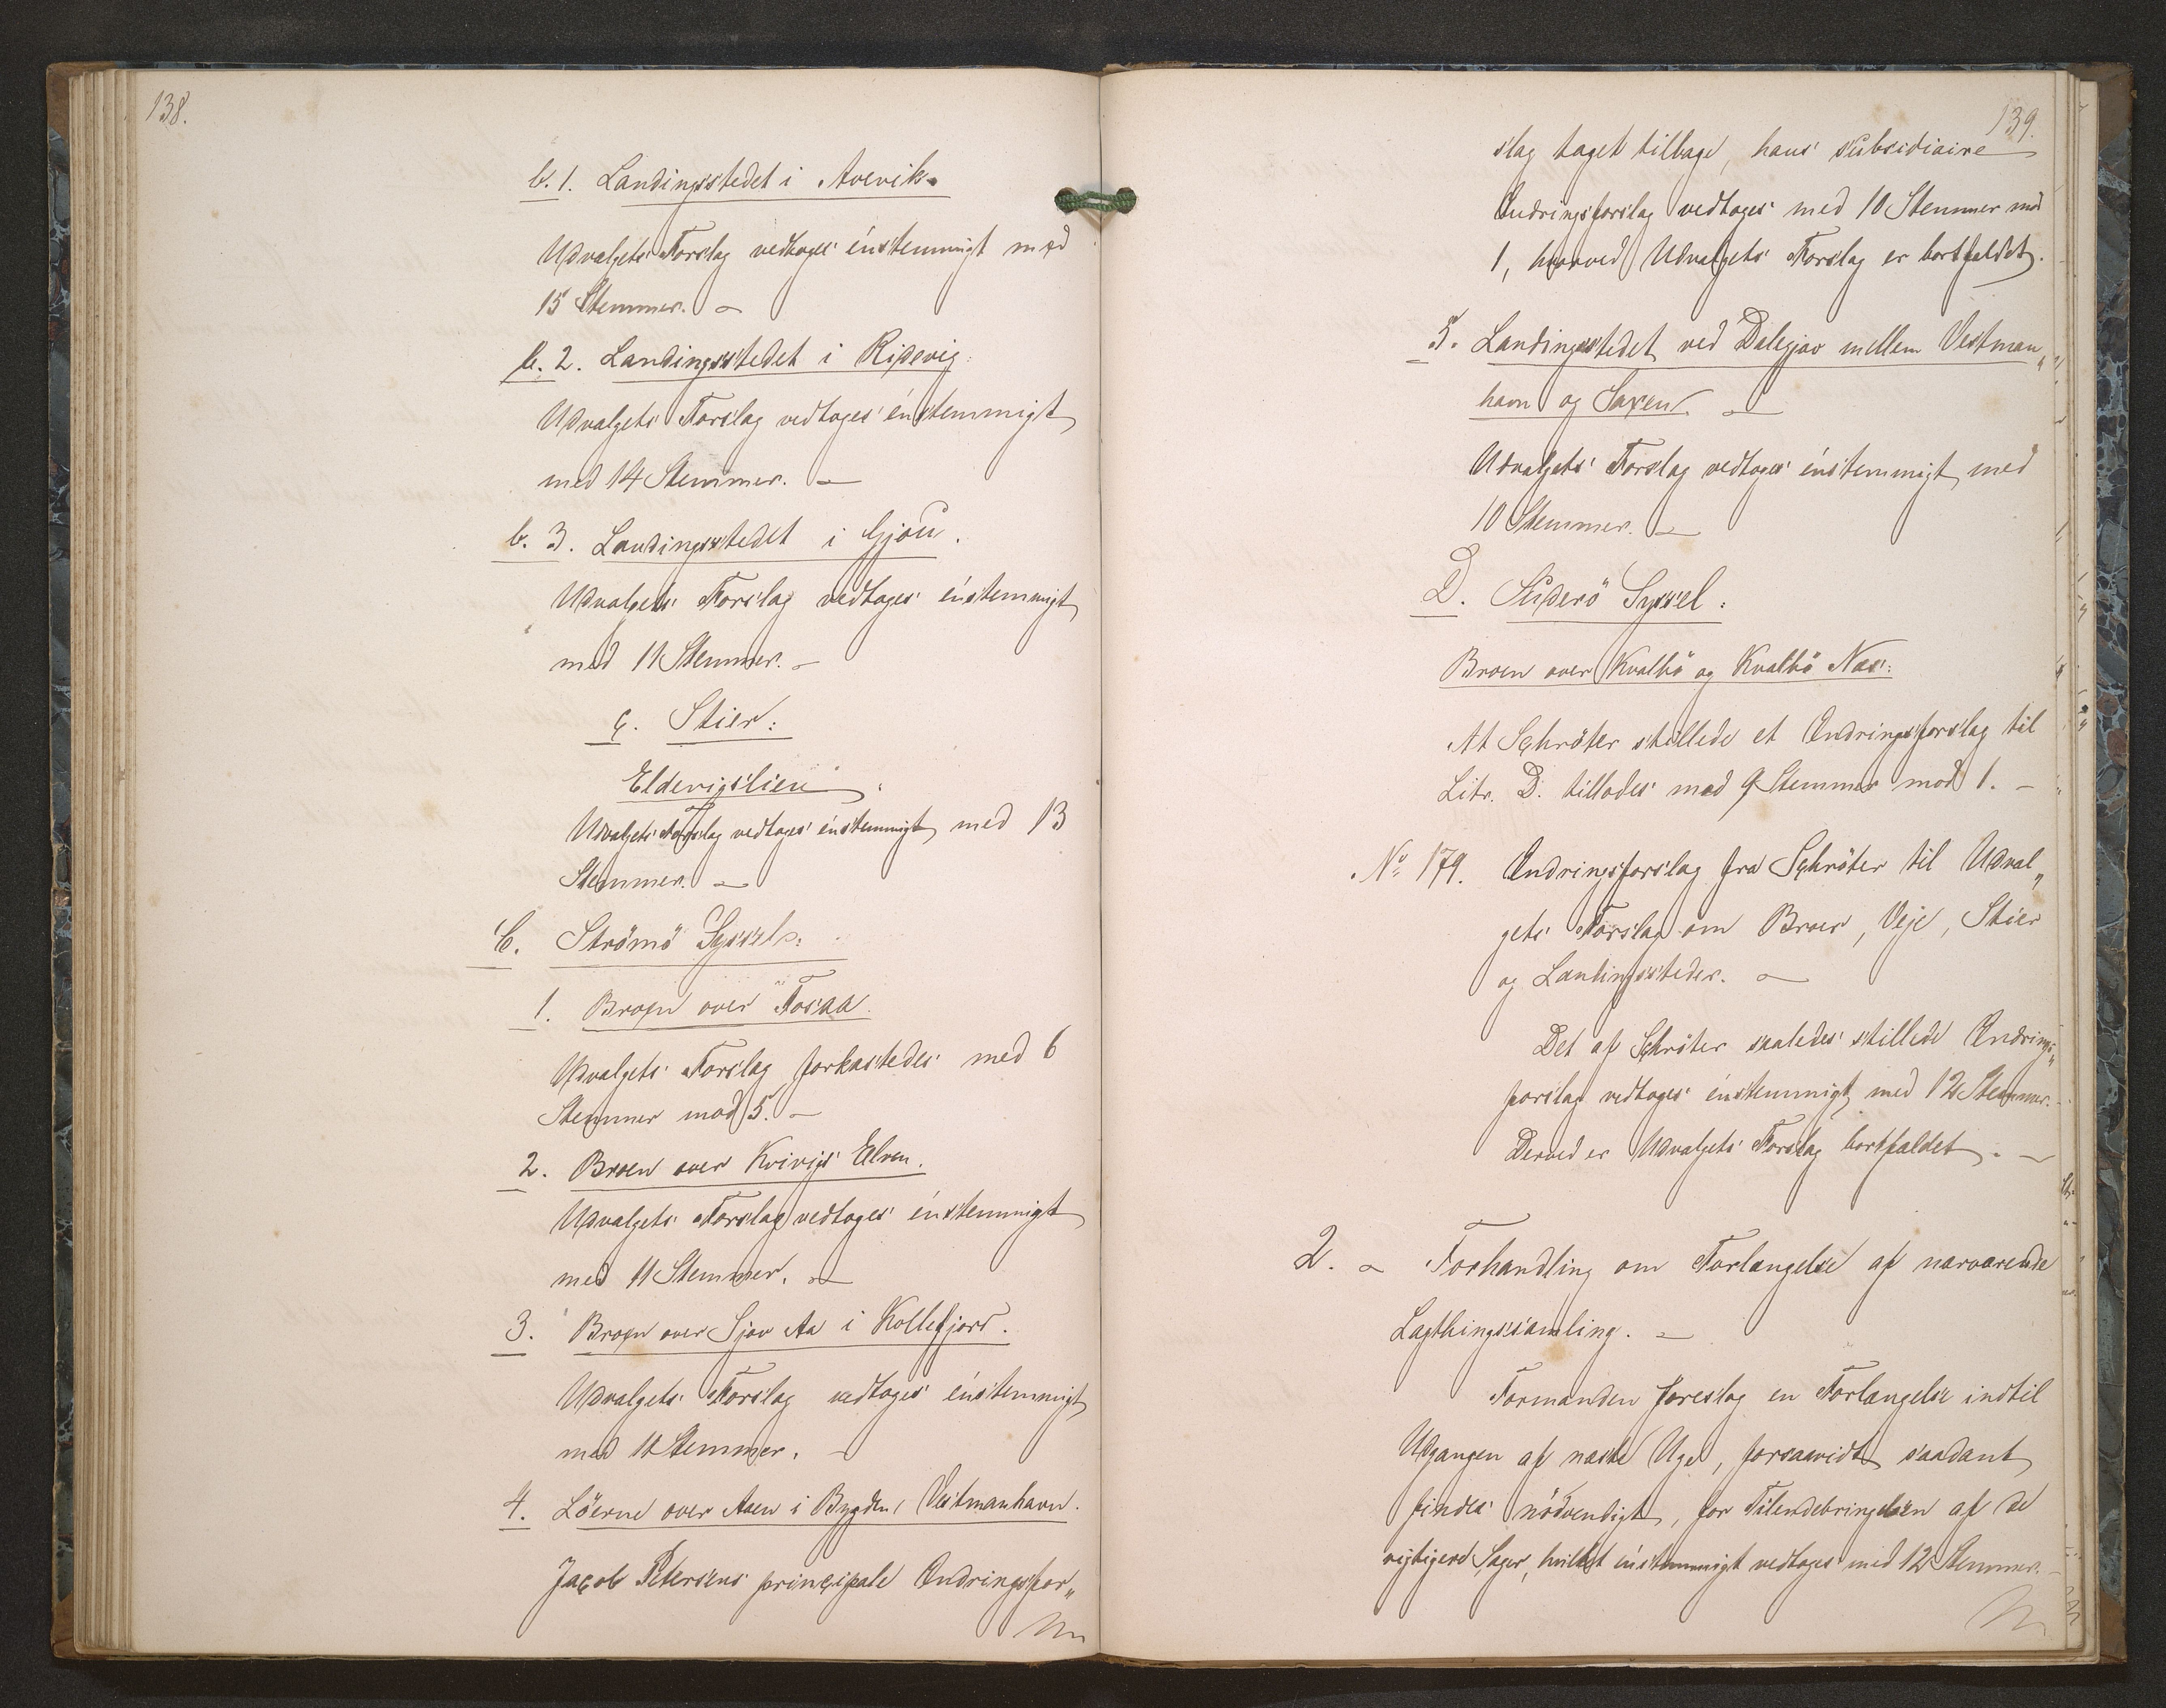 138.
b. 1. Landingsstedet i Avevik.
Udvalgets Forslag vedtoges énstemmigt med
15 Stemmer. –
b. 2. Landingsstedet i Ripevig:
Udvalgets Forslag vedtoges énstemmigt
med 14 Stemmer. –
b. 3. Landingsstedet i Gjou.
Udvalgets Forslag vedtoges énstemmigt
med 11 Stemmer. –
c. Stier:
Eldevigslien.
Udvalgets Forslag vedtoges énstemmigt med 13
Stemmer. –
C. Strömö Syssel:
1. Broen over Fosaa.
Udvalgets Forslag forkastedes med 6
Stemmer mod 5. –
2. Broen over Kvivigs Elven.
Udvalgets Forslag vedtoges énstemmigt
med 11 Stemmer. –
3. Broen over Sjov Aa i Kollefjord.
Udvalgets Forslag vedtoges énstemmigt
med 11 Stemmer. –
4. Löerne over Aaen i Bygden, Vestmanhavn.
Jacob Petersens principale Ændringsfor„
139.
slag taget tilbage, hans subsidiaire
Ændringsforslag vedtoges med 10 Stemmer mod
1, hvorved Udvalgets Forslag er bortfaldet.
5. Landingsstedet ved Dalegjov mellem Vestman„
havn og Saxen. –
Udvalgets Forslag vedtoges énstemmigt med
10 Stemmer. –
D. Süderö Syssel:
Broen over Kvalbö og Kvalbö Næs:
At Schröter stillede et Ændringsforslag til
Litr. D. tillodes med 9 Stemmer mod 1. –
No 179. Ændringsforslag fra Schröter til Udval„
gets Forslag om Broer, Veje, Stier
og Landingssteder. –
Det af Schröter saaledes stillede Ændrings„
forslag vedtoges énstemmigt med 12 Stemmer. –
Derved er Udvalgets Forslag bortfaldet. –
2. – Forhandling om Forlængelse af nærværende
Lagthingssamling. –
Formanden foreslog en Forlængelse indtil
Udgangen af næste Uge, forsaavidt saadant
findes nödvendigt, for Tilendebringelsen af de
vigtigere Sager, hvilket énstemmigt vedtoges med 12 Stemmer. –